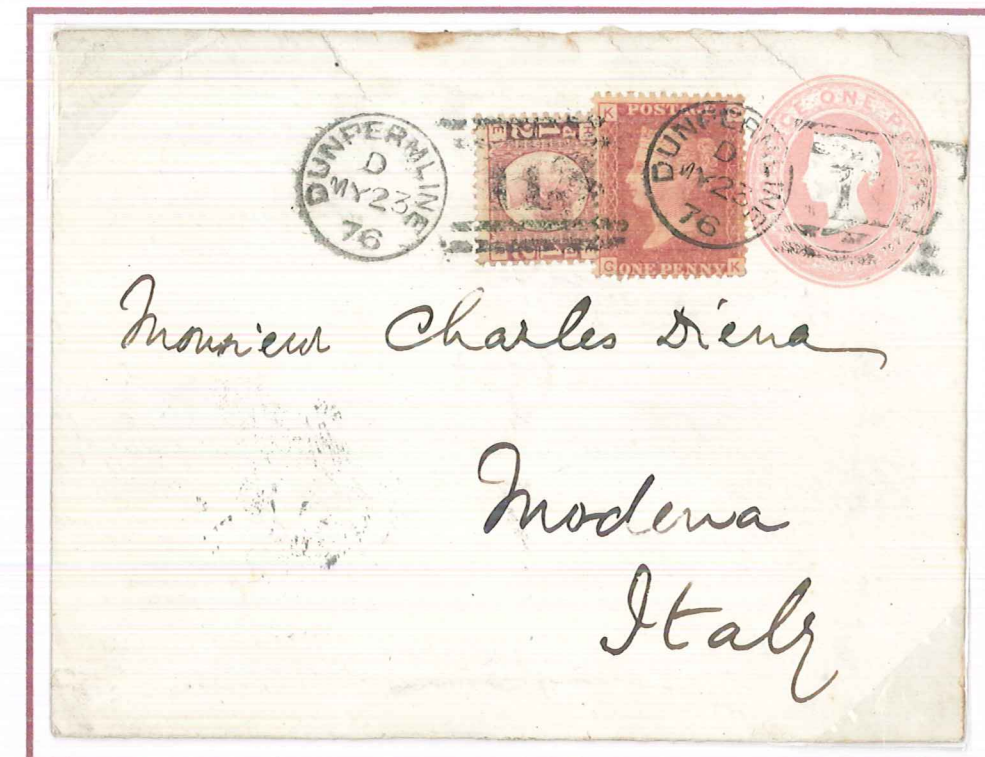 DUNFERMLINE
D
MY 23
76
POSTAGE
ONE PENNY
K G
G K
DUNFERMLINE
D
MY 23
76
ONE PENNY
Monsieur Charles Diena
Modena
Italy